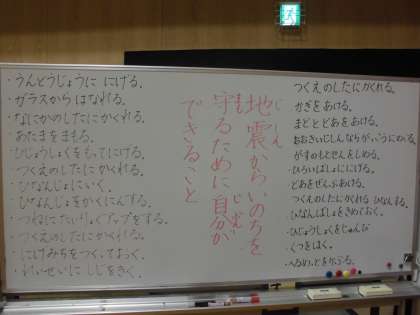 ・うんどうじょうに にげる。
・ガラスからはなれる。
・なにかのしたにかくれる。
・あたまをまもる。
・ひじょうしょくをもってにげる。
・つくえのしたにかくれる。
・ひなんじょにいく。
・ひなんじょをかくにんする。
・つねにたいりょくアップをする。
・つくえのしたにかくれる。
・にげみちをつくっておく。
・れいせいに しじをきく。
地震からいのちを
じしん
守るために自分が
まも
じぶん
できること
つくえのしたにかくれる。
・かぎをあける。
・まどとどあをあける。
・おおきいじしんならがいこうにのる
・がすのもとせんをしめる。
・ひろいばしょににげる。
・どあをぜんぶあける。
・つくえのしたにかくれる ひなんする。
・ひなんばしょをきめておく。
・ひじょうしょくをじゅんび
・くつをはく。
・へるめっとをかぶる。